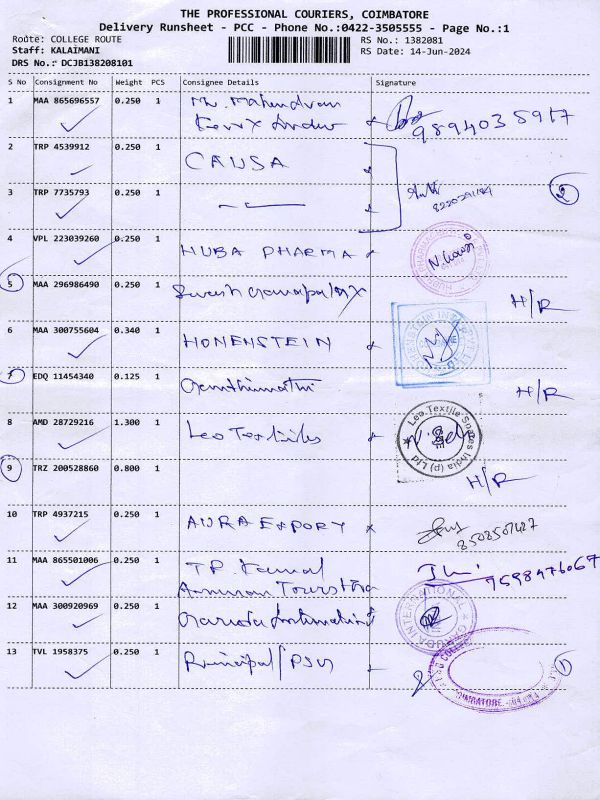 THE PROFESSIONAL COURIERS, COIMBATORE
Delivery Runsheet - PCC - Phone No.:0422-3505555 - Page No.:1
Route: COLLEGE ROUTE
RS No.: 1382081
Staff: KALAIMANI
RS Date: 14-Jun-2024
DRS No.: DCJB138208101
S No Consignment No Weight PCS Consignee Details Signature
1 MAA 865696557 0.250 1 Mr. Mahendran
2 TRP 4539912 0.250 1 CAUSA
3 TRP 7735793 0.250 1
2
4 VPL 223039260 0.250 1 HUBA PHARMA
5 MAA 296986490 0.250 1 H/R
6 MAA 300755604 0.340 1 HONENSTEIN
7 EDQ 11454340 0.125 1 Ganthimathi H/R
8 AMD 28729216 1.300 1 Leo Textiles
Leo Textile Spares India (p) Ltd
9 TRZ 200528860 0.800 1 H/R
10 TRP 4937215 0.250 1 AURA EXPORT
11 MAA 865501006 0.250 1 TP Kamal
9598976067
12 MAA 300920969 0.250 1
13 TVL 1958375 0.250 1 Principal/PSG
1